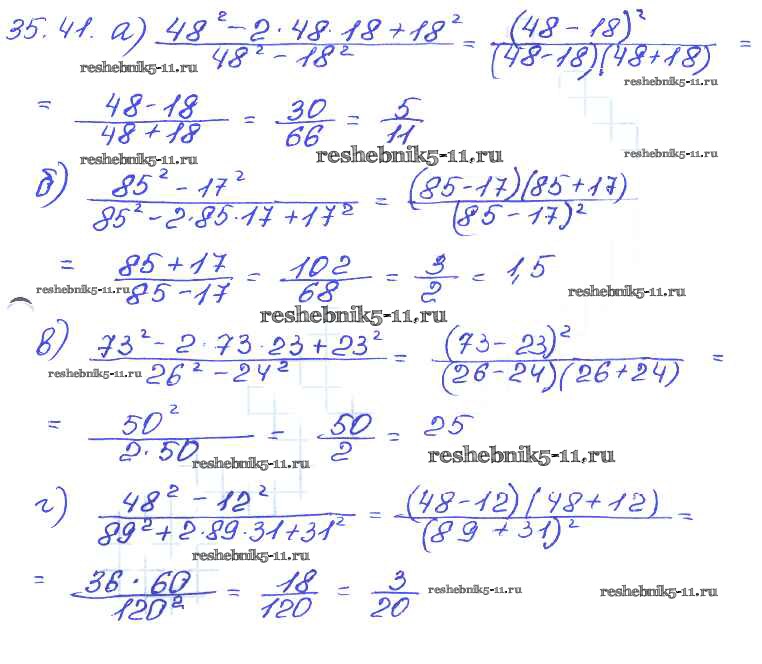 35.41. а) (48² − 2·48·18 + 18²)/(48² − 18²) = (48 − 18)²/((48−18)(48+18)) =
reshebnik5-11.ru
reshebnik5-11.ru
= (48−18)/(48+18) = 30/66 = 5/11
reshebnik5-11.ru
reshebnik5-11.ru
reshebnik5-11.ru
б) (85² − 17²)/(85² − 2·85·17 + 17²) = ((85−17)(85+17))/(85−17)²
= (85+17)/(85−17) = 102/68 = 3/2 = 1,5
reshebnik5-11.ru
reshebnik5-11.ru
reshebnik5-11.ru
в) (73² − 2·73·23 + 23²)/(26² − 24²) = (73−23)²/((26−24)(26+24)) =
reshebnik5-11.ru
= 50²/(2·50) = 50/2 = 25
reshebnik5-11.ru
reshebnik5-11.ru
г) (48² − 12²)/(89² + 2·89·31 + 31²) = ((48−12)(48+12))/(89+31)² =
reshebnik5-11.ru
= (36·60)/120² = 18/120 = 3/20
reshebnik5-11.ru
reshebnik5-11.ru